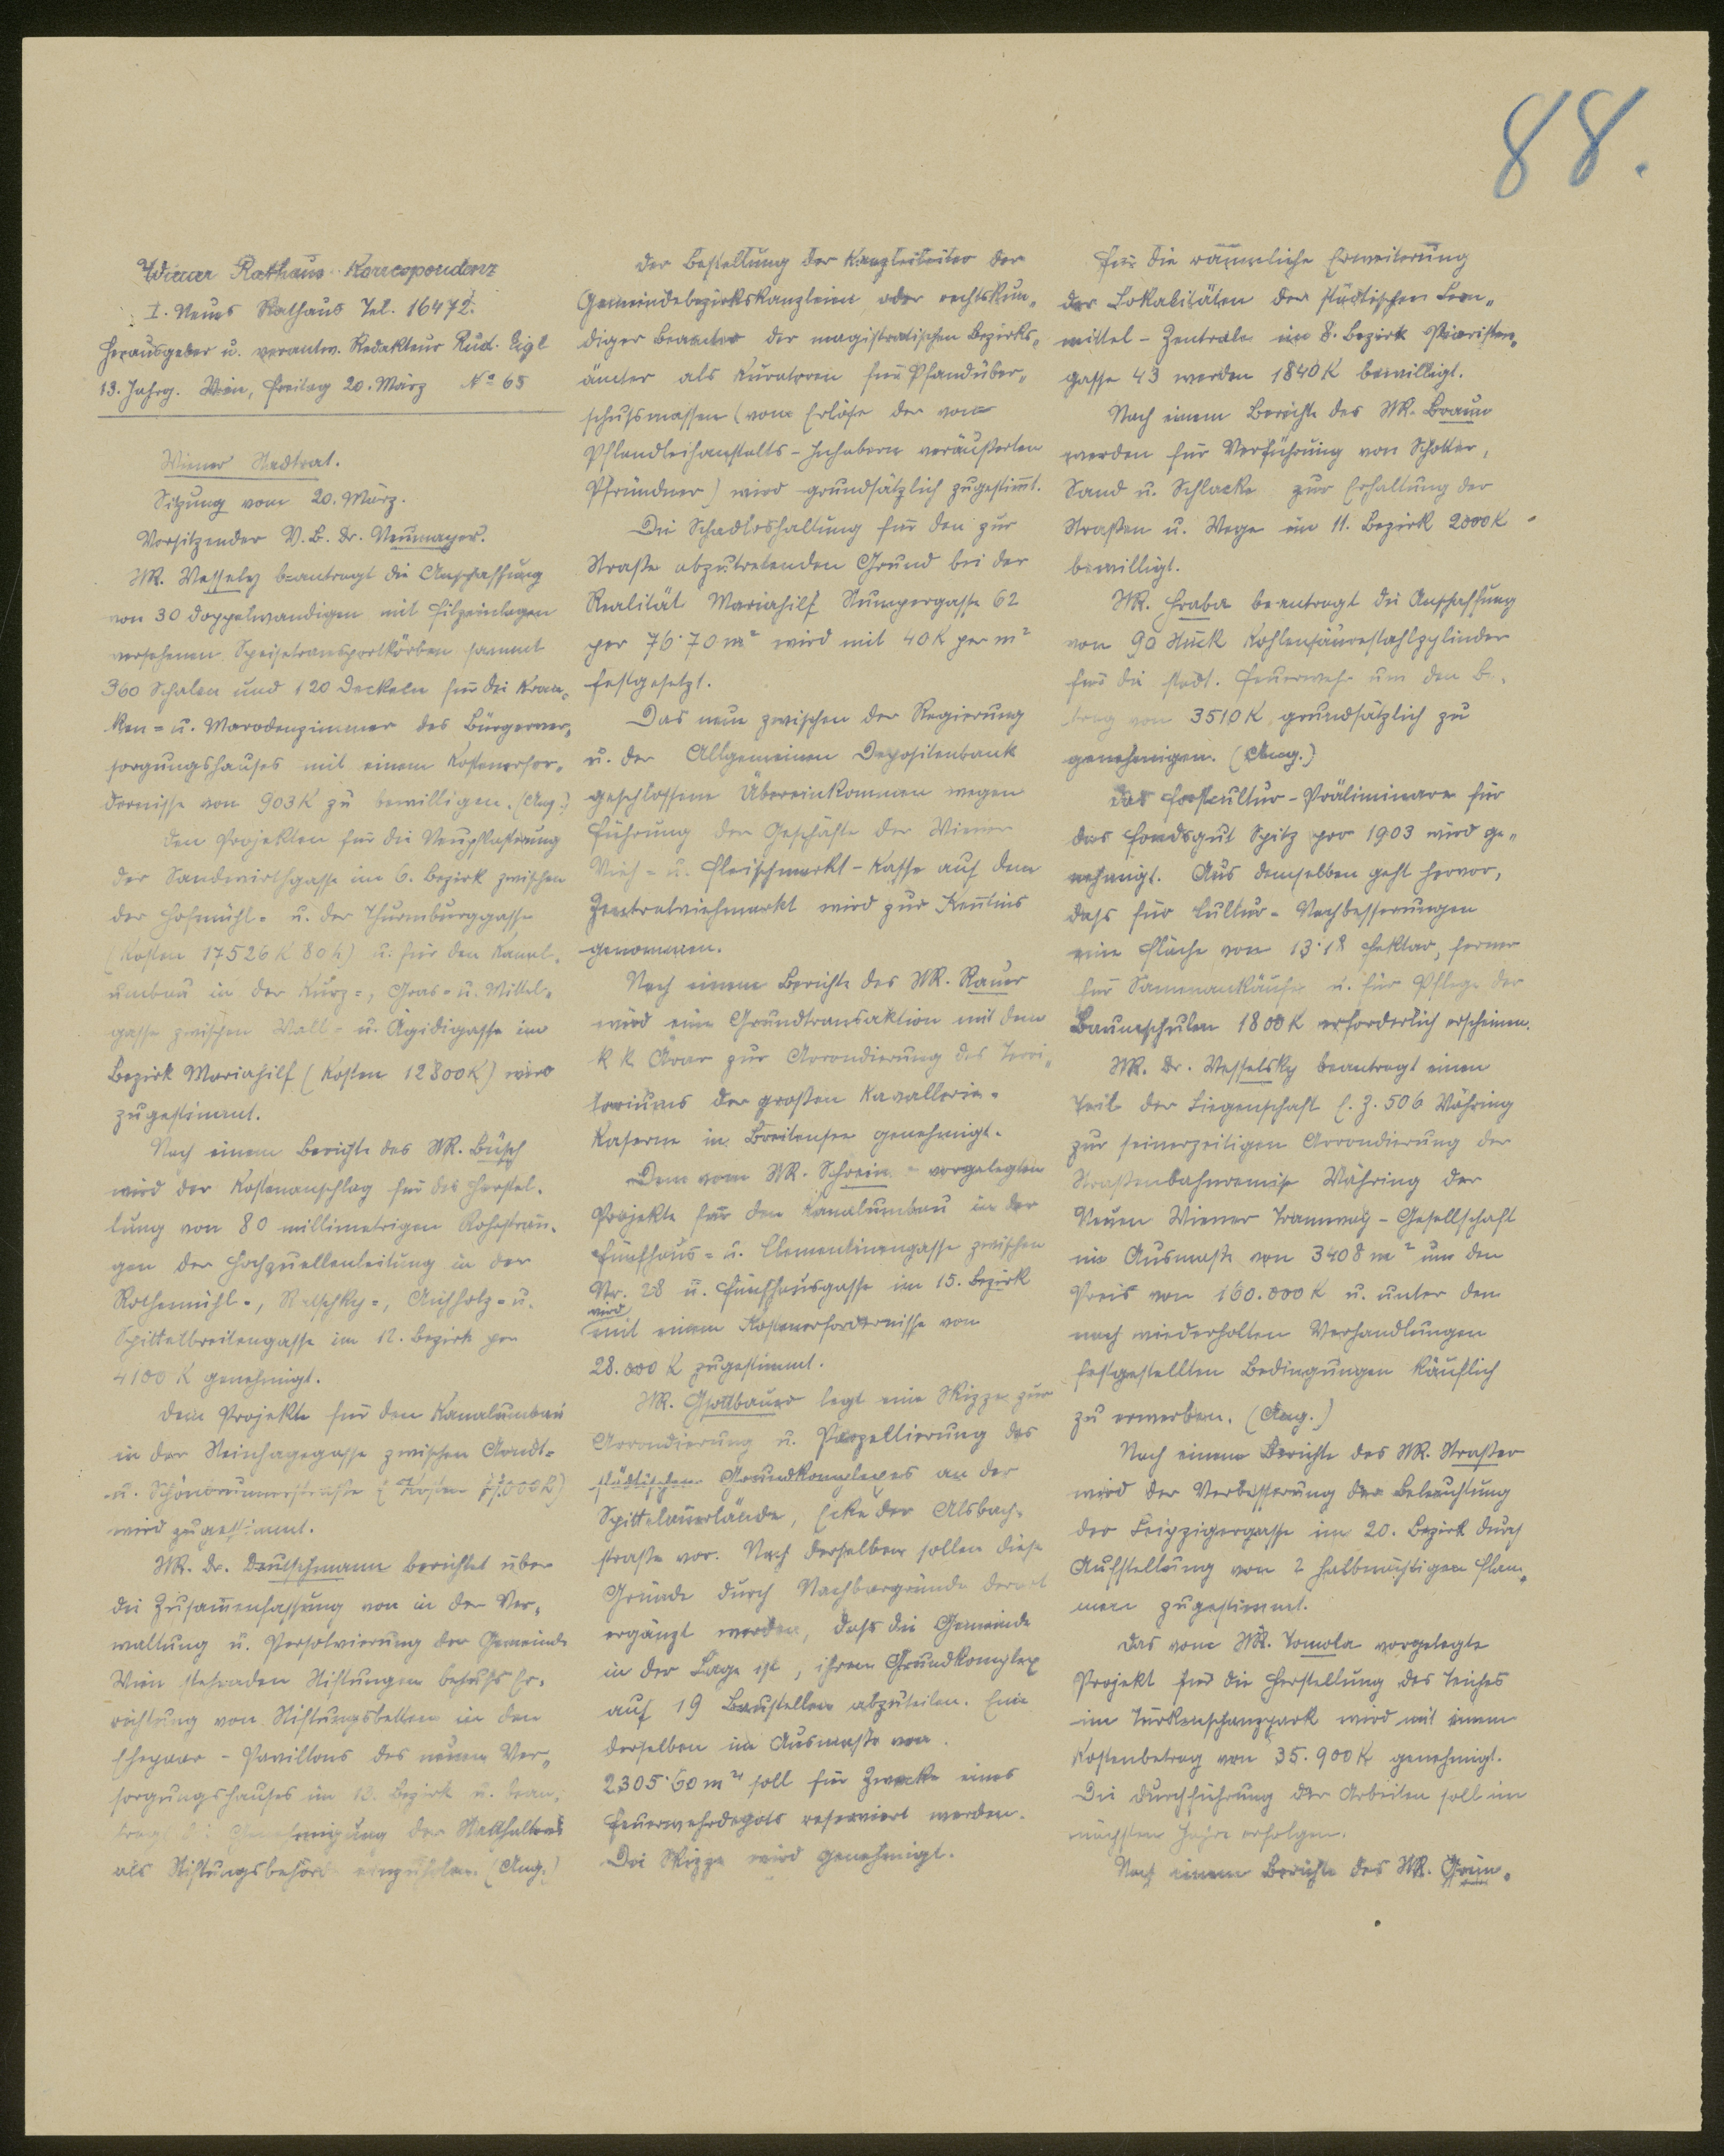 88.
Wiener Rathaus-Korrespondenz
I. Neues Rathaus Tel. 16472.
Herausgeber u. verantw. Redakteur Rud. Eigl
13. Jahrg. Wien, Freitag 20. März No 65
Wiener Stadtrat.
Sitzung vom 20. März.
Vorsitzender V.B. Dr. Neumayer.
StR. Wessely beantragt die Anschaffung
von 30 doppelwandigen mit Filzeinlagen
versehenen Speisetransportkörben sammt
360 Schalen und 120 Deckeln für die Kran-
ken- u. Marodenzimmer des Bürgerver-
sorgungshauses mit einem Kostenerfor-
dernisse von 903 K zu bewilligen. (Ang.)
Den Projekten für die Neupflasterung
der Sandwirthgasse im 6. Bezirk zwischen
der Hofmühl- u. der Thurmburggasse
(Kosten 17526 K 80 h) u. für den Kanal-
umbau in der Kurz-, Gras- u. Mittel-
gasse zwischen Wall- u. Ägidigasse im
Bezirk Mariahilf (Kosten 12800 K) wird
zugestimmt.
Nach einem Berichte des StR. Büsch
wird der Kostenanschlag für die Herstel-
lung von 80 millimetrigen Rohrsträn-
gen der Hochquellenleitung in der
Rothenmühl-, Ratschky-, Aichholz- u.
Spittelbreitengasse im 12. Bezirk per
4100 K genehmigt.
Dem Projekte für den Kanalumbau
in der Steinhagegasse zwischen Arndt-
u. Schönbrunnerstraße (Kosten
wird zugestimmt.
StR. Dr. Deutschmann berichtet über
die Zusam̅enfassung von in der Ver-
waltung u. Persolvierung der Gemeinde
Wien stehenden Stiftungen behufs Er-
richtung von Stiftungsbetten in den
Ehepaar-Pavillons des neuen Ver-
sorgungshauses im 13. Bezirk u. bean-
tragt die Genehmigung der Statthalterei
als Stiftungsbehörde einzuholen. (Ang.)
Der Bestellung der Kanzleileiter der
Gemeindebezirkskanzleien oder rechtskun-
diger Beamter der magistratischen Bezirks-
ämter als Kuratoren für Pfandüber-
schußmassen (vom Erlöse der von
Pfandleihanstalts-Inhabern veräußerten
Pfründner) wird grundsätzlich zugestim̅t.
Die Schadloshaltung für den zur
Straße abzutretenden Grund bei der
Realität Mariahilf Stumpergasse 62
per 76·70 m² wird mit 40 K per m²
festgesetzt.
Das neue zwischen der Regierung
u. der Allgemeinen Depositenbank
geschlossene Übereinkommen wegen
Führung der Geschäfte der Wiener
Vieh- u. Fleischmarkt-Kasse auf dem
Zentralviehmarkt wird zur Ken̅tnis
genommen.
Nach einem Berichte des StR. Rauer
wird eine Grundtransaktion mit dem
k k Ärar zur Arrondierung des Terri-
toriums der großen Kavallerie-
Kaserne in Breitensee genehmigt.
Dem vom StR. Schrein vorgelegten
Projekte für den Kanalumbau in der
Fünfhaus- u. Clementinengasse zwischen
Nr. 28 u. Fünfhausgasse im 15. Bezirk
wird
mit einem Kostenerfordernisse von
28.000 K zugestimmt.
StR. Gsottbauer legt eine Skizze zur
Arrondierung u. Parzellierung des
städtischen Grundkomplexes an der
Spittelauerlände, Ecke der Alsbach-
straße vor. Nach derselben sollen diese
Gründe durch Nachbargründe derart
ergänzt werden, daß die Gemeinde
in der Lage ist, ihren Grundkomplex
auf 19 Baustellen abzuteilen. Eine
derselben im Ausmaße von
2305·60 m² soll für Zwecke eines
Feuerwehrdepots reserviert werden.
Die Skizze wird genehmigt.
Für die räumliche Erweiterung
der Lokalitäten der städtischen Lern-
mittel-Zentrale im 8. Bezirk Piaristen-
gasse 43 werden 1840 K bewilligt.
Nach einem Berichte des StR. Braun
werden für Verführung von Schotter,
Sand u. Schlacke zur Erhaltung der
Straßen u. Wege im 11. Bezirk 2000 K
bewilligt.
StR. Hraba beantragt die Anschaffung
von 90 Stück Kohlensäurestahlzylinder
für die städt. Feuerwehr um den Be-
trag von 3510 K grundsätzlich zu
genehmigen. (Ang.)
Das Forstcultur-Präliminare für
das Fondsgut Spitz pro 1903 wird ge-
nehmigt. Aus demselben geht hervor,
daß für Cultur-Nachbesserungen
eine Fläche von 13·18 Hektar, ferner
für Samenankäufe u. für Pflege der
Baumschulen 1800 K erforderlich erscheinen.
StR. Dr. Wesselsky beantragt einen
Teil der Liegenschaft E.Z. 506 Währing
zur seinerzeitigen Arrondierung der
Straßenbahnremise Währing der
Neuen Wiener Tramway-Gesellschaft
im Ausmaße von 3408 m² um den
Preis von 160.000 K u. unter den
nach wiederholten Verhandlungen
festgestellten Bedingungen käuflich
zu erwerben. (Ang.)
Nach einem Berichte des StR. Straßer
wird der Verbesserung der Beleuchtung
der Leipzigergasse im 20. Bezirk durch
Aufstellung von 2 halbnächtigen Flam-
men zugestimmt.
Das vom StR. Tomola vorgelegte
Projekt für die Herstellung des Teiches
im Türkenschanzpark wird mit einem
Kostenbetrag von 35.900 K genehmigt.
Die Durchführung der Arbeiten soll im
nächsten Jahre erfolgen.
Nach einem Berichte des StR. Grün-